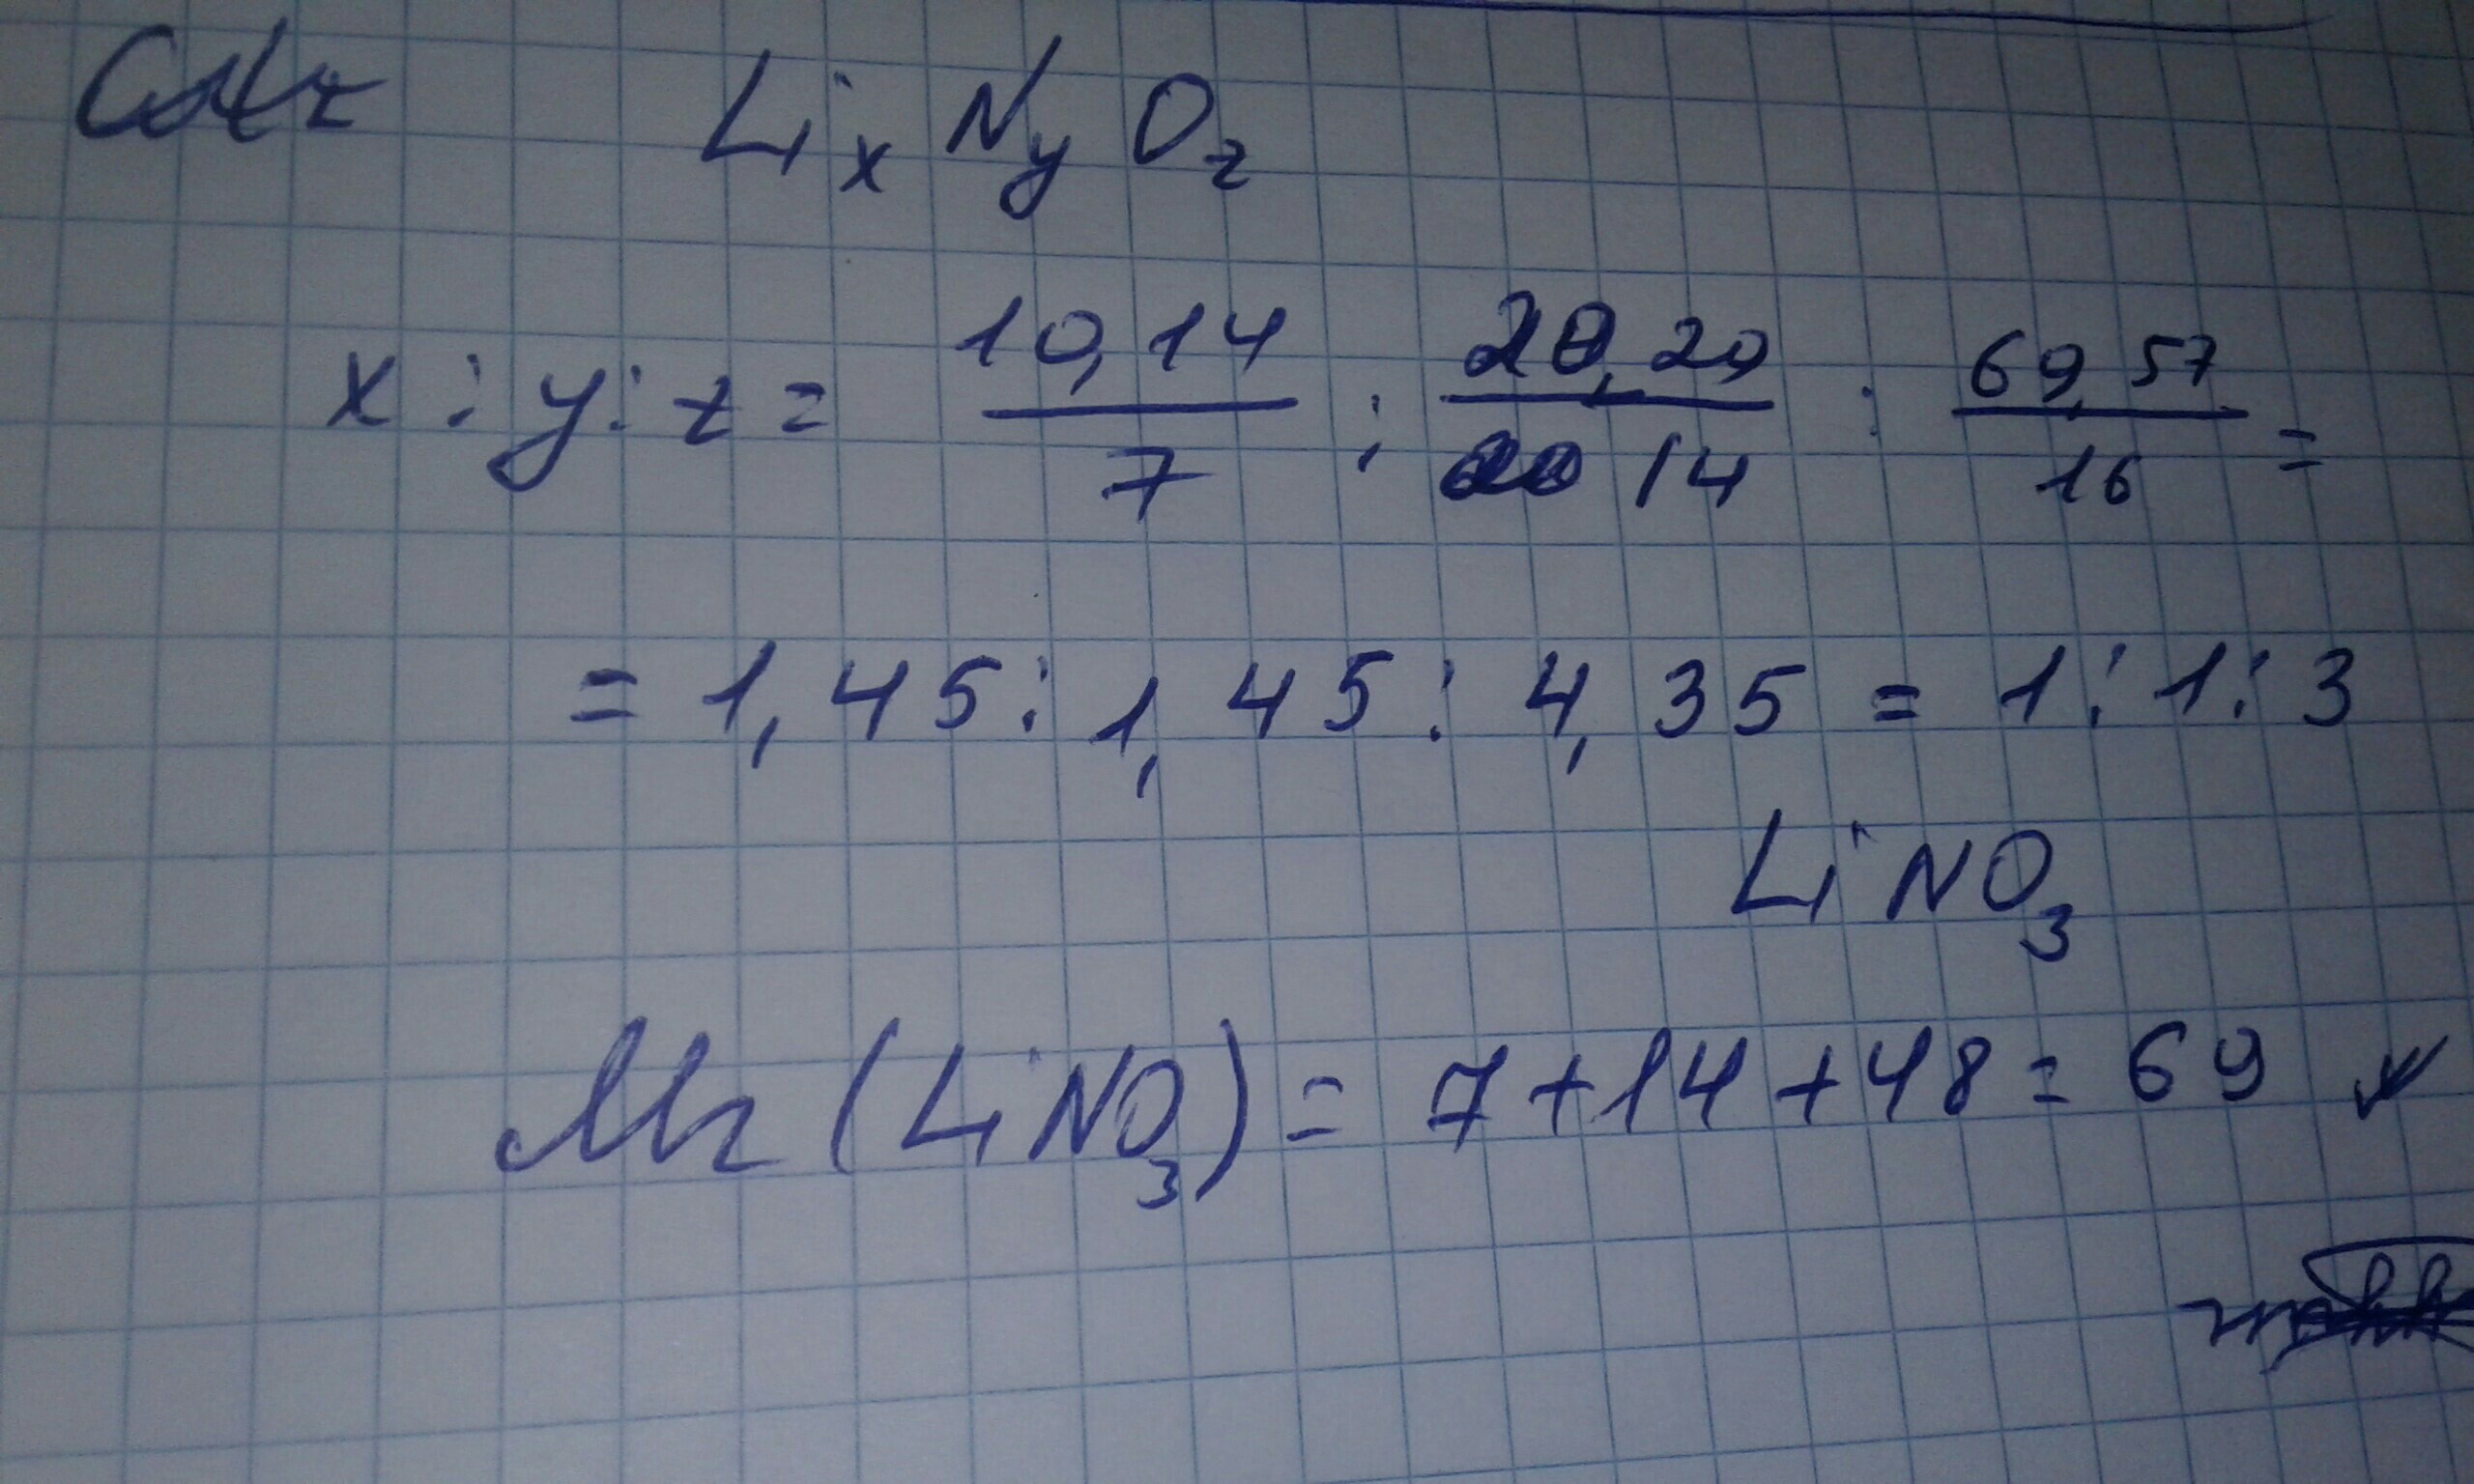 Li x N y O z
x : y : z = 10,14/7 : 20,29/14 : 69,57/16 =
= 1,45 : 1,45 : 4,35 = 1 : 1 : 3
LiNO3
Mr (LiNO3) = 7 + 14 + 48 = 69